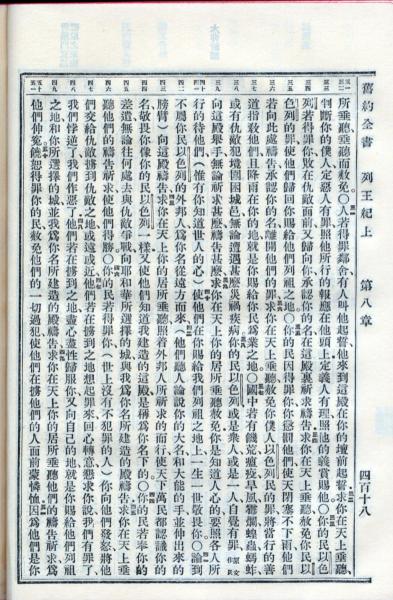 舊約全書 列王紀上 第八章 四百十八
所垂聽垂聽而赦免〇人若得罪鄰舍有人叫他起誓他來到這殿在你的壇前起誓求你在天上垂聽
判斷你的僕人定惡人有罪照他所行的報應在他頭上定義人有理照他的義賞賜他〇你的民以色
列若得罪你敗在仇敵面前又歸向你承認你的名在這殿裏祈求禱告求你在天上垂聽赦免你民以
色列的罪使他們歸回你賜給他們列祖之地〇你的民因得罪你你懲罰他們使天閉塞不下雨他們
若向此處禱告承認你的名離開他們的罪求你在天上垂聽赦免你僕人以色列民的罪將當行的善
道指教他們且降雨在你的地就是你賜給你民爲業之地〇國中若有饑荒瘟疫旱風霉爛蝗蟲螞蚱
或有仇敵犯境圍困城邑無論遭遇甚麼災禍疾病你的民以色列或是衆人或是一人自覺有罪(原文作災)
向這殿舉手無論祈求甚麼禱告甚麼求你在天上你的居所垂聽赦免你是知道人心的要照各人所
行的待他們(惟有你知道世人的心)使他們在你賜給我們列祖之地上一生一世敬畏你〇論到
不屬你民以色列的外邦人爲你名從遠方而來(他們聽人論說你的大名和大能的手並伸出來的
膀臂)向這殿禱告求你在天上你的居所垂聽照着外邦人所祈求的而行使天下萬民都認識你的
名敬畏你像你的民以色列一樣又使他們知道我建造的這殿是稱爲你名下的〇你的民若奉你的
差遣無論往何處去與仇敵爭戰向耶和華所選擇的城與我爲你名所建造的殿禱告求你在天上垂
聽他們的禱告祈求使他們得勝〇你的民若得罪你(世上沒有不犯罪的人)你向他們發怒將他
們交給仇敵擄到仇敵之地或遠或近他們若在擄到之地想起罪來回心轉意懇求你說我們有罪了
我們悖逆了我們作惡了他們若在擄到之地盡心盡性歸服你又向自己的地就是你賜給他們列祖
之地和你所選擇的城並我爲你名所建造的殿禱告求你在天上你的居所垂聽他們的禱告祈求爲
他們伸冤饒恕得罪你的民赦免他們的一切過犯使他們在擄他們的人面前蒙憐恤因爲他們是你